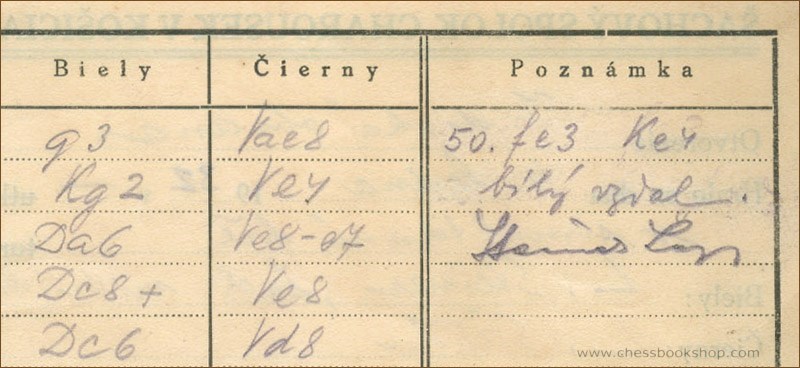 Biely Čierny Poznámka
g3 Vae8 50. fe3 Ke4
Kg2 Ve4 bílý vzdal.
Da6 Ve8-e7
Dc8+ Ve8
Dc6 Vd8
www.chessbookshop.com